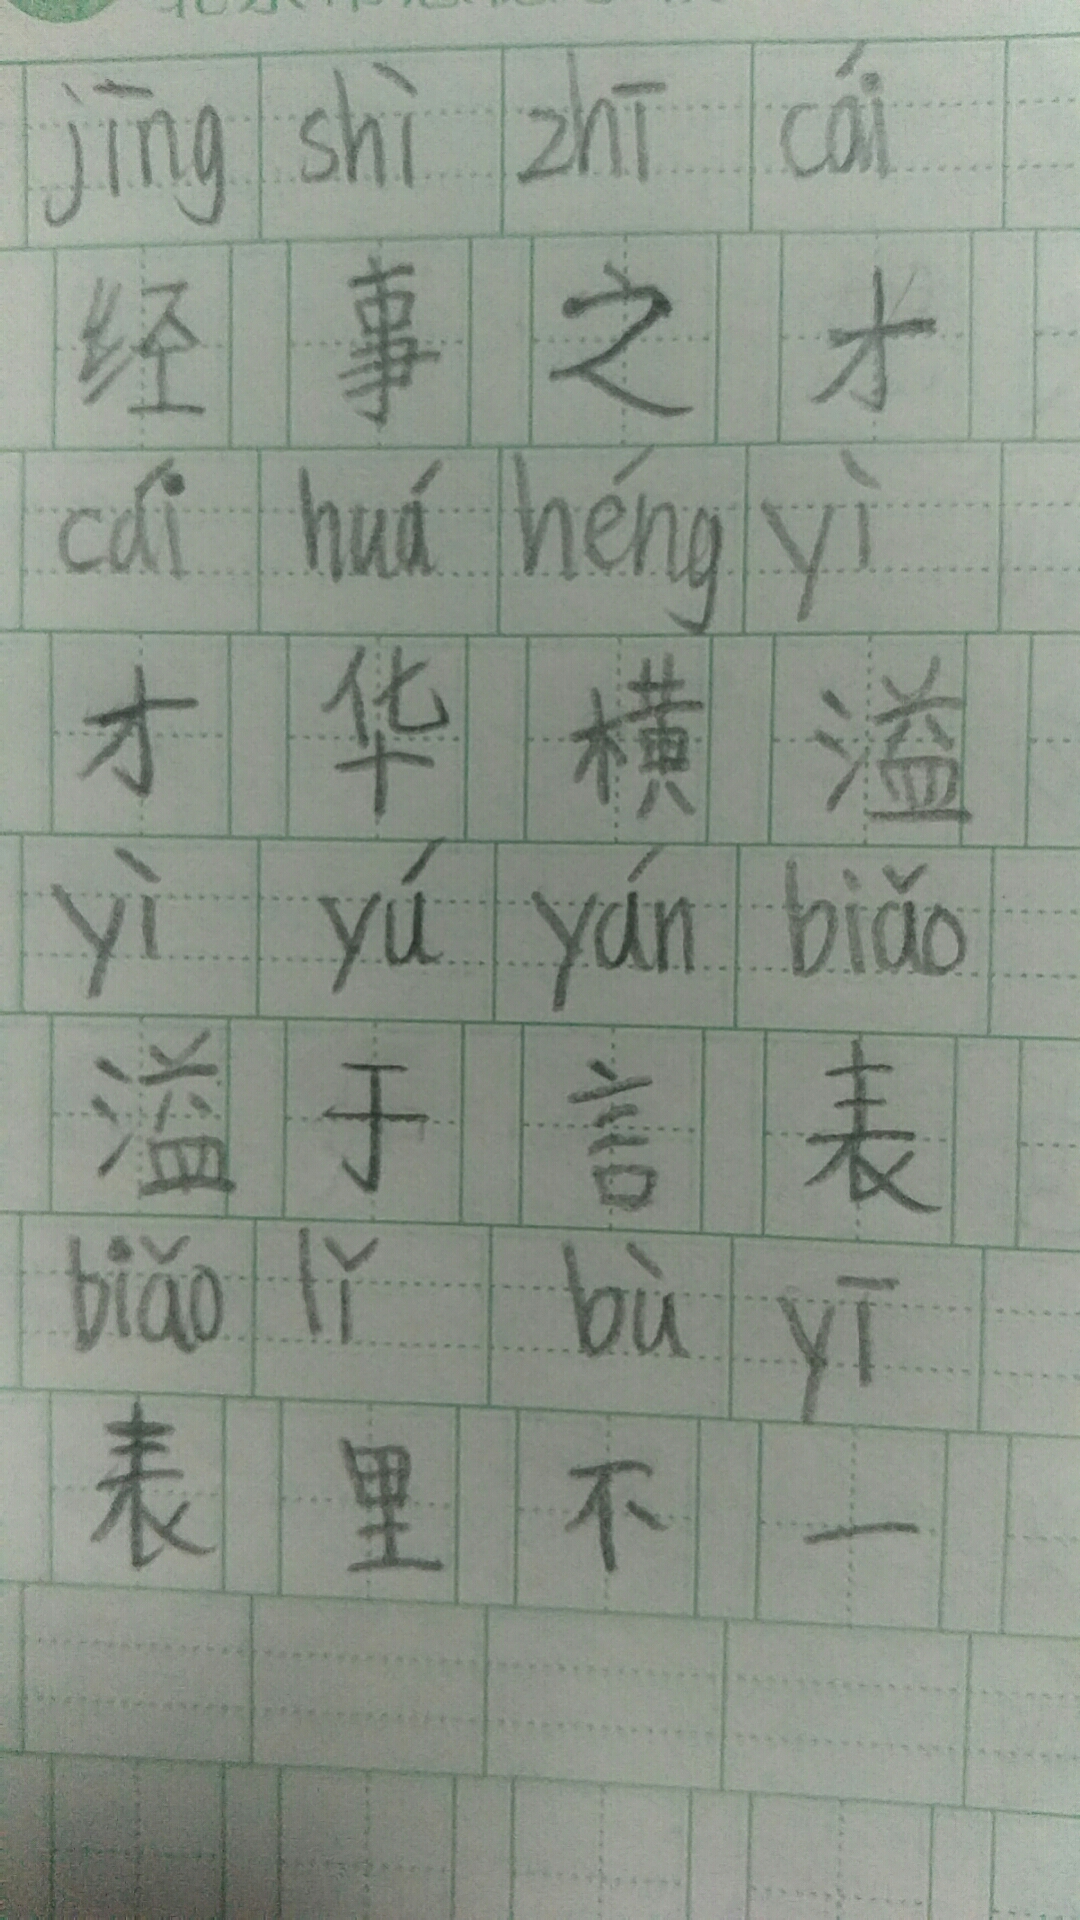 jīng shì zhī cái
经事之才
cái huá héng yì
才华横溢
yì yú yán biǎo
溢于言表
biǎo lǐ bù yī
表里不一